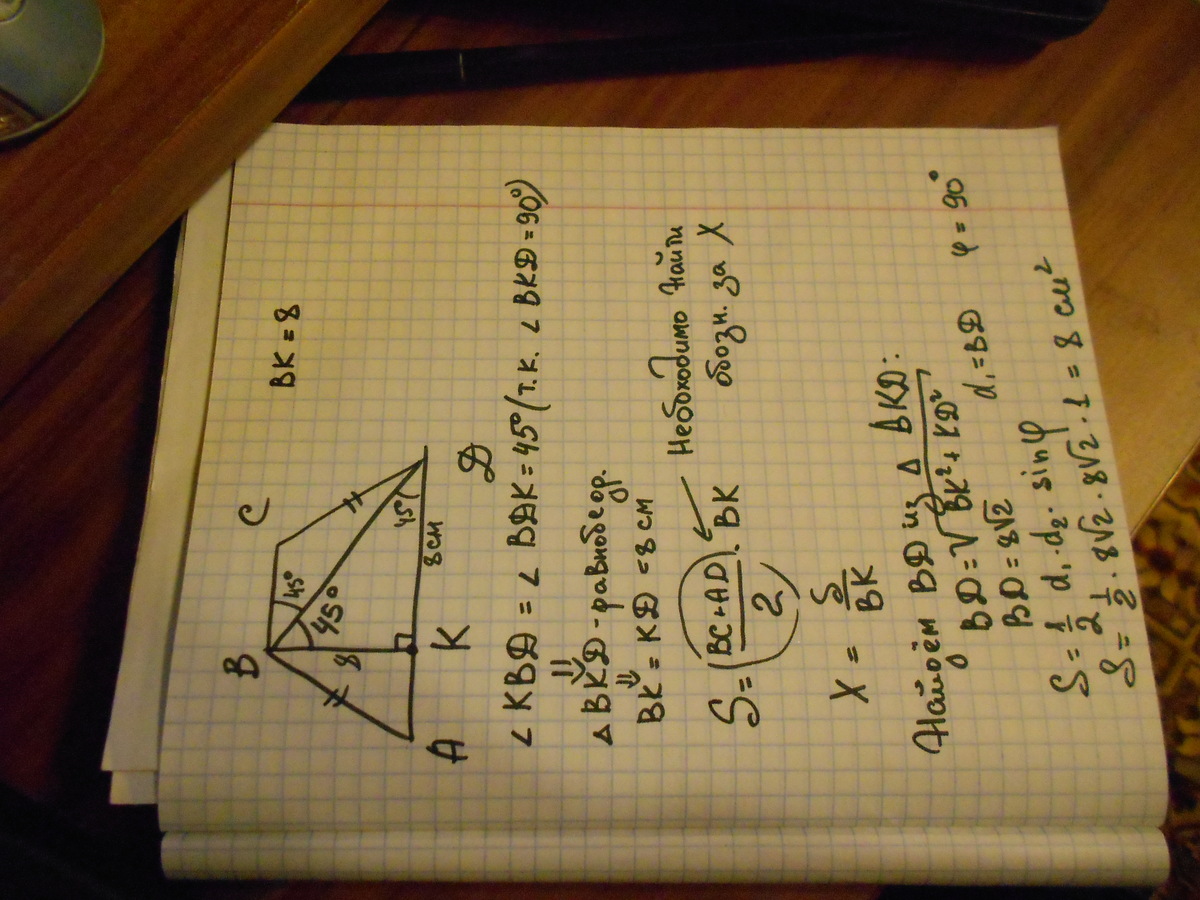 BK = 8
B
C
45°
45°
8
45°
8 см
A
K
D
∠ KBD = ∠ BDK = 45° (т.к. ∠ BKD = 90°)
⇓
△ BKD - равнобедр.
⇓
BK = KD = 8 см
S = (BC + AD / 2) · BK
Необходимо найти
обозн. за X
X = S / BK
Найдём BD из △ BKD:
BD = √BK² + KD²
BD = 8√2
d₁ = BD φ = 90°
S = 1/2 d₁ · d₂ · sin φ
S = 1/2 · 8√2 · 8√2 · 1 = 8 см²